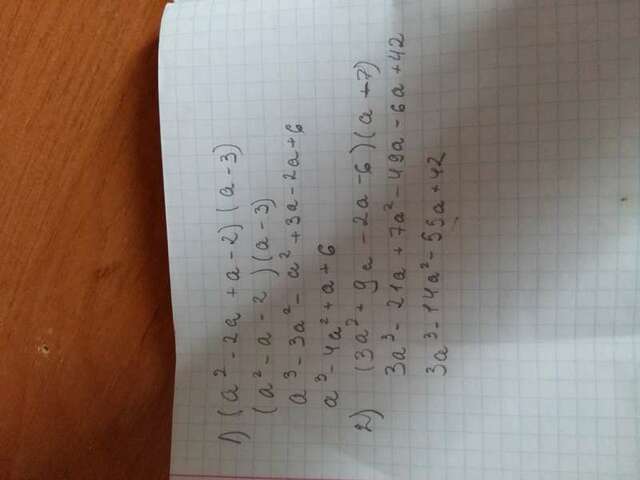 1) (a² - 2a + a - 2) (a - 3)
(a² - a - 2) (a - 3)
a³ - 3a² - a² + 3a - 2a + 6
a³ - 4a² + a + 6
2) (3a² + 9a - 2a - 6) (a - 7)
3a³ - 21a + 7a² - 49a - 6a + 42
3a³ - 14a² - 55a + 42